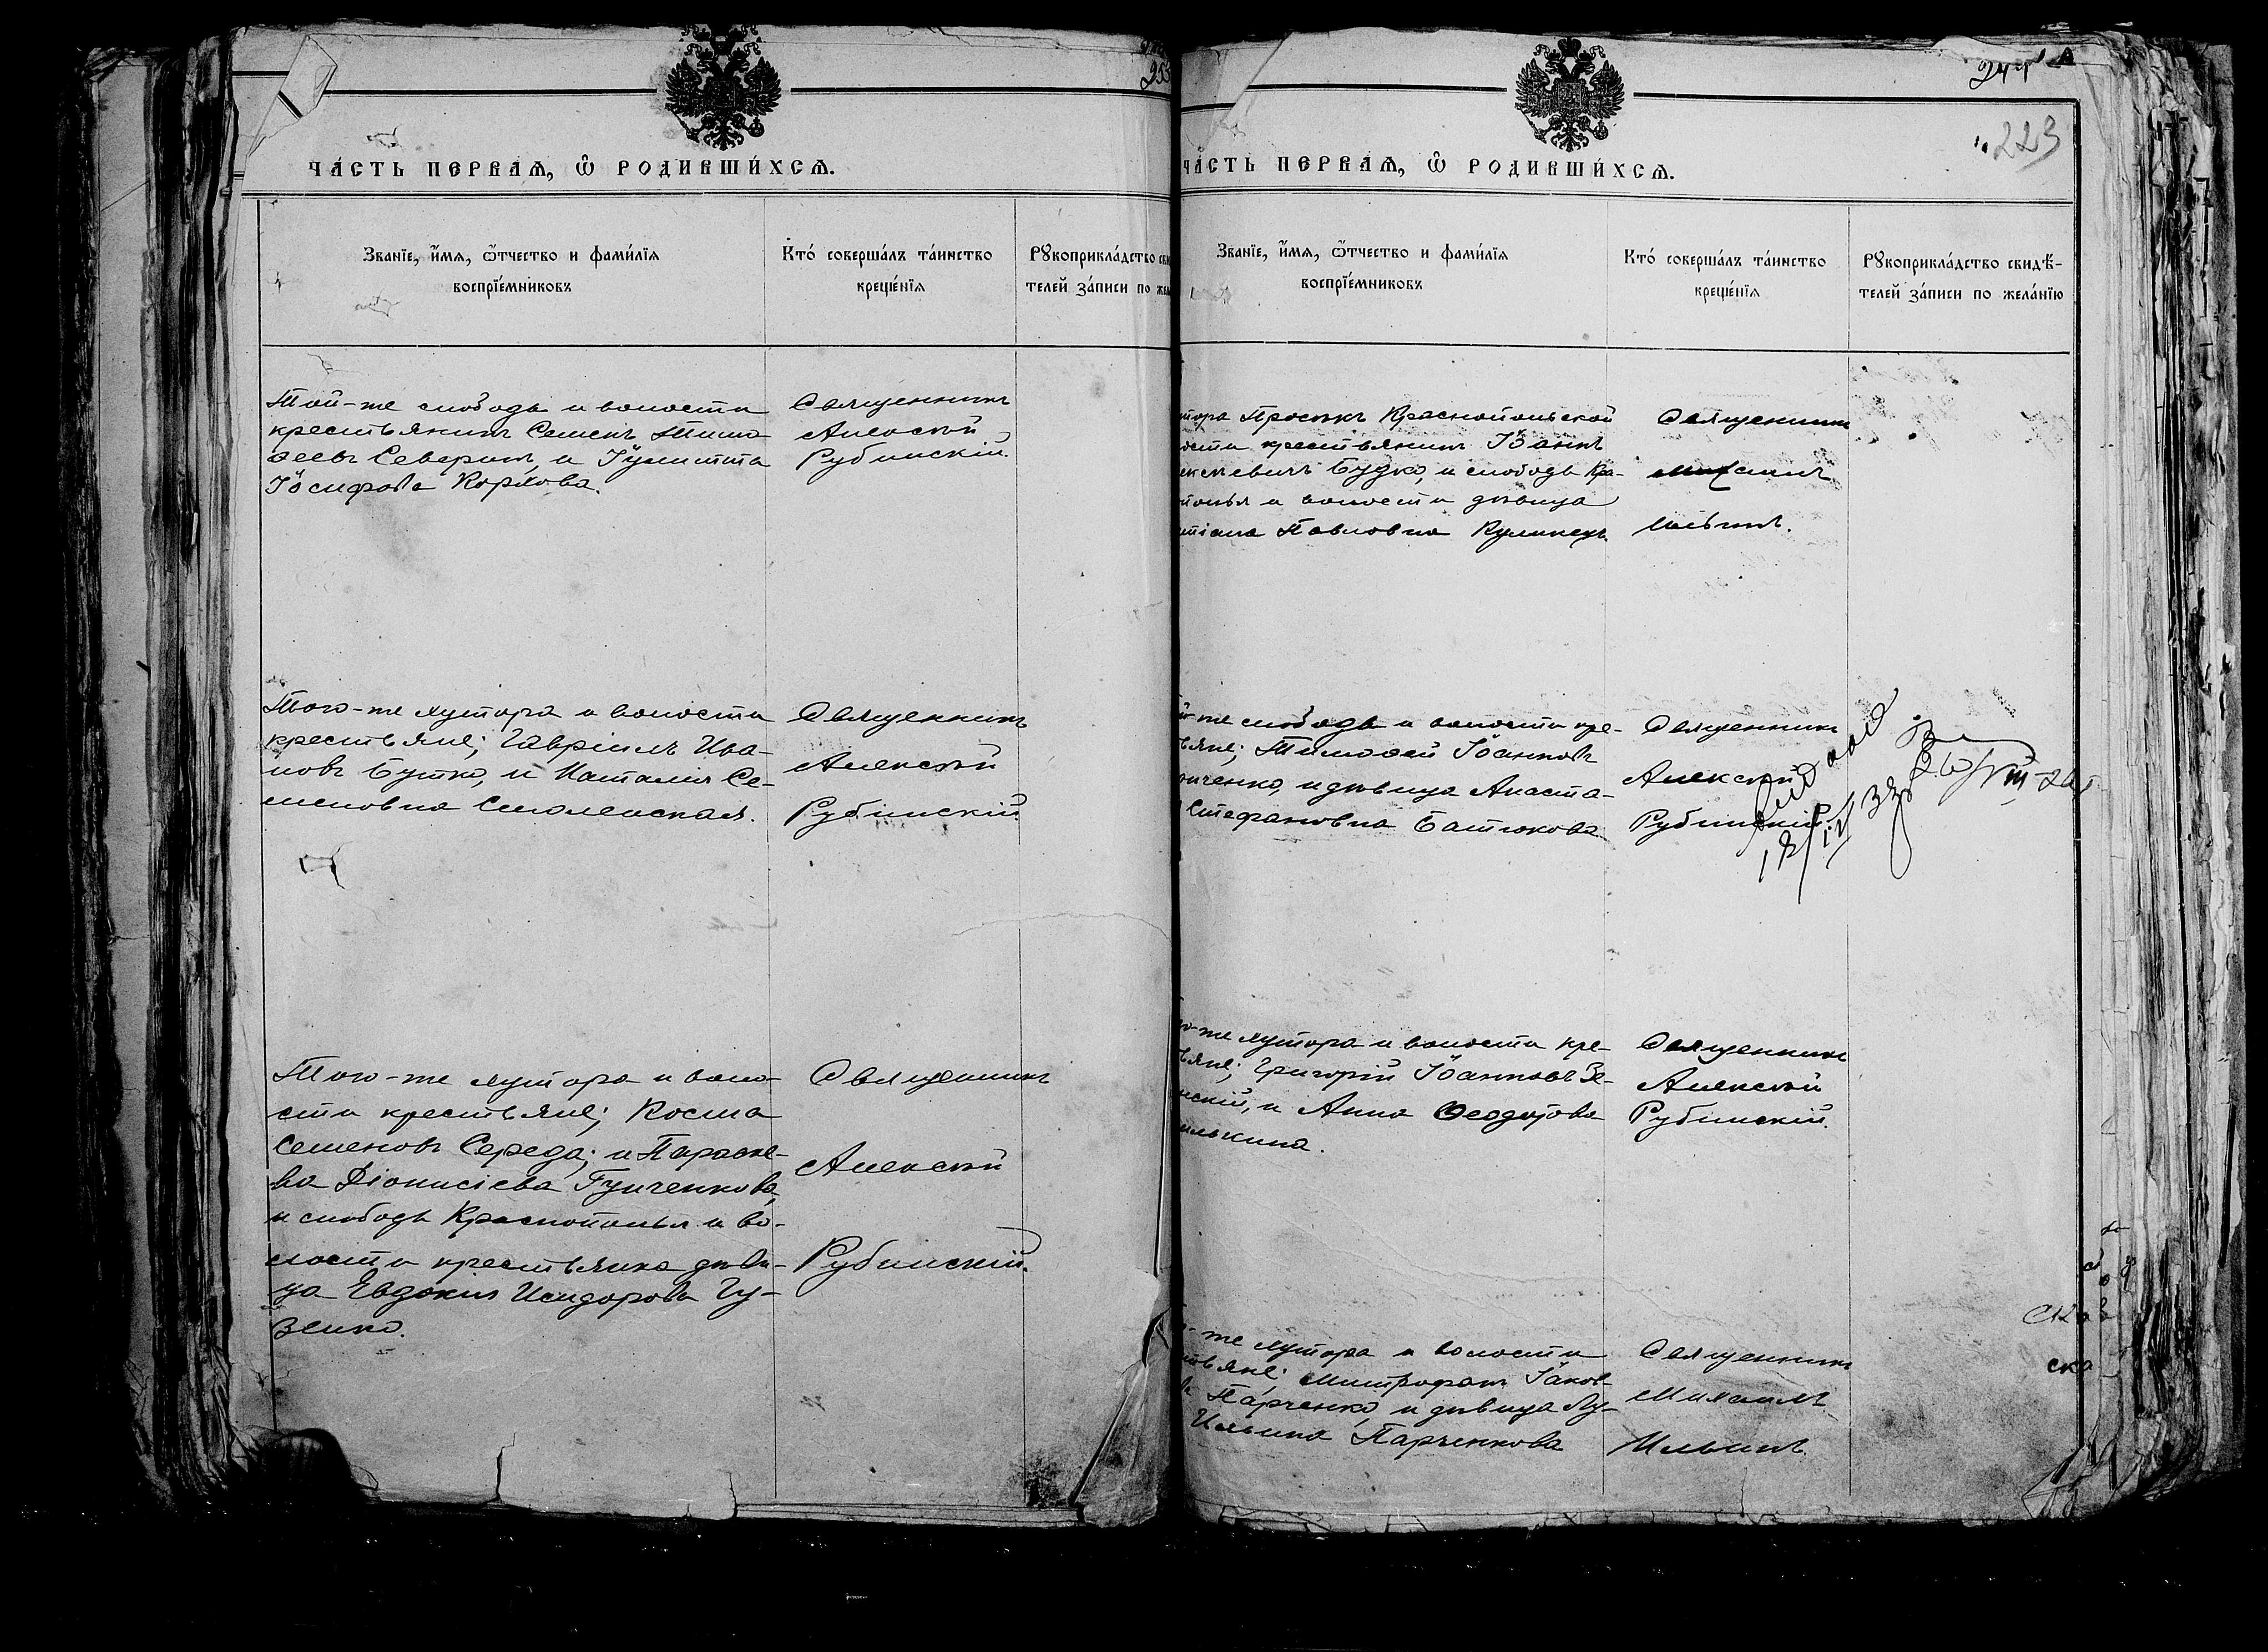 ЧА́СТЬ ПЕРВАѦ, Ѡ҆ РОДИВШИ́ХСѦ.
Зва́нїе, и҆́мѧ, ѻ҆́тчество и фами́лїѧ
воспрїе́мниковъ
Кто́ соверша́лъ та́инство
креще́нїѧ
Рꙋкоприкла́дство сви
телей за́писи по жел
Той-же слободы и волости
крестьянинъ Семенъ Тимо
ѳеевъ Северинъ, и Іулитта
Іосифова Корхова.
Священникъ
Алексѣй
Рубинскій.
Того-же хутора и волости
крестьяне; Гавріилъ Ива-
новъ Бутко, и Наталія Се-
меновна Смоленская.
Священникъ
Алексѣй
Рубинскій
Того-же хутора и воло-
сти крестьяне; Косма
Семеновъ Середа; и Параске-
ва Діонисіева Гунченкова,
и слободы Краснополья и во-
лости крестьянка дѣви-
ца Евдокія Исидорова Гу-
зенко.
Священникъ
Алексѣй
Рубинскій.
244
223
ЧА́СТЬ ПЕРВАѦ, Ѡ҆ РОДИВШИ́ХСѦ.
Зва́нїе, и҆́мѧ, ѻ҆́тчество и фами́лїѧ
воспрїе́мниковъ
Кто́ соверша́лъ та́инство
креще́нїѧ
Рꙋкоприкла́дство свидѣ́-
телей за́писи по жела́нїю
тора Просѣкъ Краснопольской
ости крестьянинъ Іоаннъ
ексѣевичъ Будко, и слободы Кра-
нополья и волости дѣвица
тіана Павловна Кулинецъ.
Священникъ
Михаилъ
Ильинъ.
й-же слободы и волости кре-
ьяне; Тимоѳей Іоанновъ
нченко, и дѣвица Анаста-
Стефановна Батюкова
Священникъ
Алексѣй
Рубинскій.
о-же хутора и волости кре-
ьяне; Григорій Іоанновъ Зе-
нскій, и Анна Ѳеодотова
илькина.
Священникъ
Алексѣй
Рубинскій.
-же хутора и волости
тьяне; Митрофанъ Іаков-
Парченко, и дѣвица Лу-
Ильина Парченкова
Священникъ
Михаилъ
Ильинъ.
ска